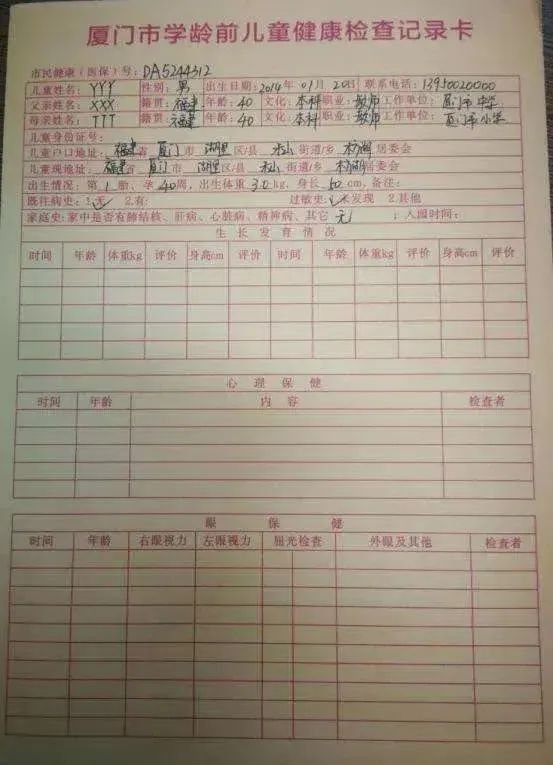 厦门市学龄前儿童健康检查记录卡
市民健康(医保)号: DA5244312
儿童姓名: YYY 性别: 男 出生日期: 2014年 01月 20日 联系电话: 13950020000
父亲姓名: XXX 籍贯: 福建 年龄: 40 文化: 本科 职业: 教师 工作单位: 厦门市中学
母亲姓名: TTT 籍贯: 福建 年龄: 40 文化: 本科 职业: 教师 工作单位: 厦门市小学
儿童身份证号:
儿童户口地址: 福建省 厦门市 湖里区/县 禾山街道/乡 居委会
儿童现地址: 福建省 厦门市 湖里区/县 禾山街道/乡 居委会
出生情况: 第1胎、孕40周, 出生体重3.0kg, 身长50cm, 备注:
既往病史: 1.无 2.有: 过敏史: 1.未发现 2.其他
家庭史: 家中是否有肺结核、肝病、心脏病、精神病、其它 无 ; 入园时间:
生长发育情况
时间 年龄 体重kg 评价 身高cm 评价 时间 年龄 体重kg 评价 身高cm 评价
心理保健
时间 年龄 内容 检查者
眼保健
时间 年龄 右眼视力 左眼视力 屈光检查 外眼及其他 检查者